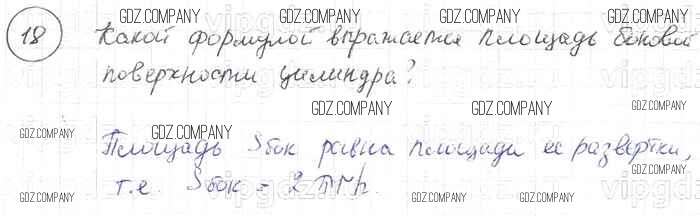 18 Какой формулой выражается площадь боковой
поверхности цилиндра?
Площадь Sбок равна площади ее развертки,
т.е. Sбок = 2πrh.
GDZ.COMPANY GDZ.COMPANY GDZ.COMPANY
GDZ.COMPANY GDZ.COMPANY
GDZ.COMPANY GDZ.COMPANY
GDZ.COMPANY GDZ.COMPANY GDZ.COMPANY
GDZ.COMPANY GDZ.COMPANY